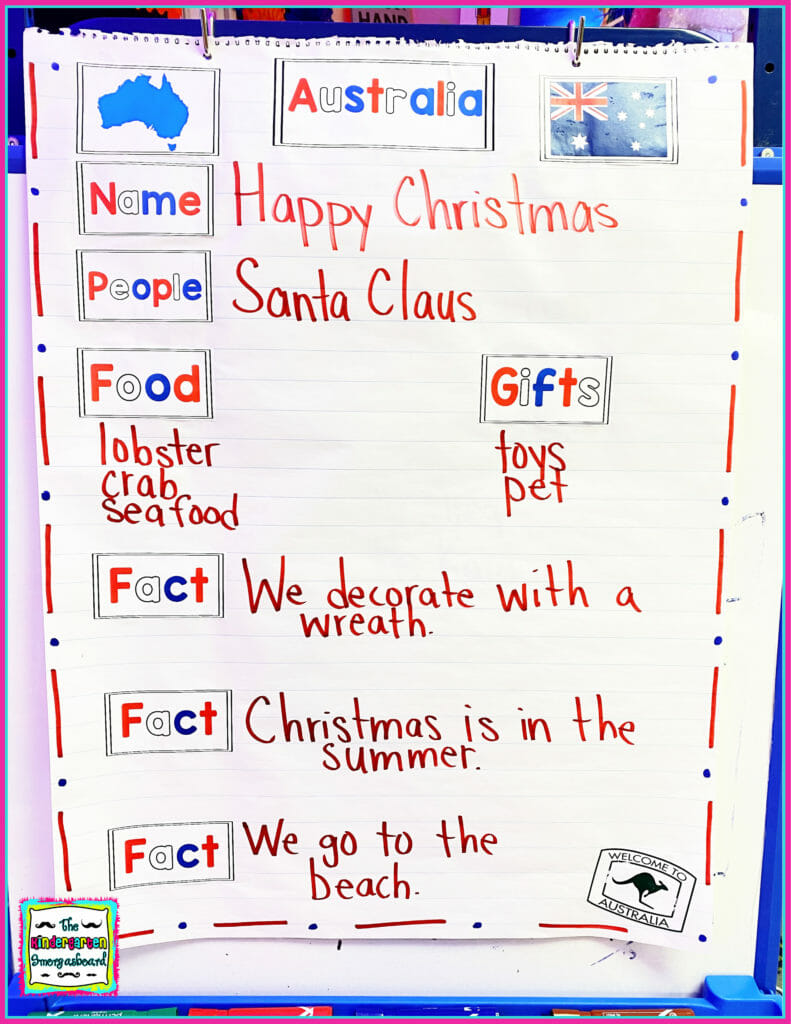 HAND
Australia
Name Happy Christmas
People Santa Claus
Food
lobster
crab
seafood
Gifts
toys
pet
Fact We decorate with a
wreath.
Fact Christmas is in the
summer.
Fact We go to the
beach.
WELCOME TO
AUSTRALIA
The
Kindergarten
Smorgasboard